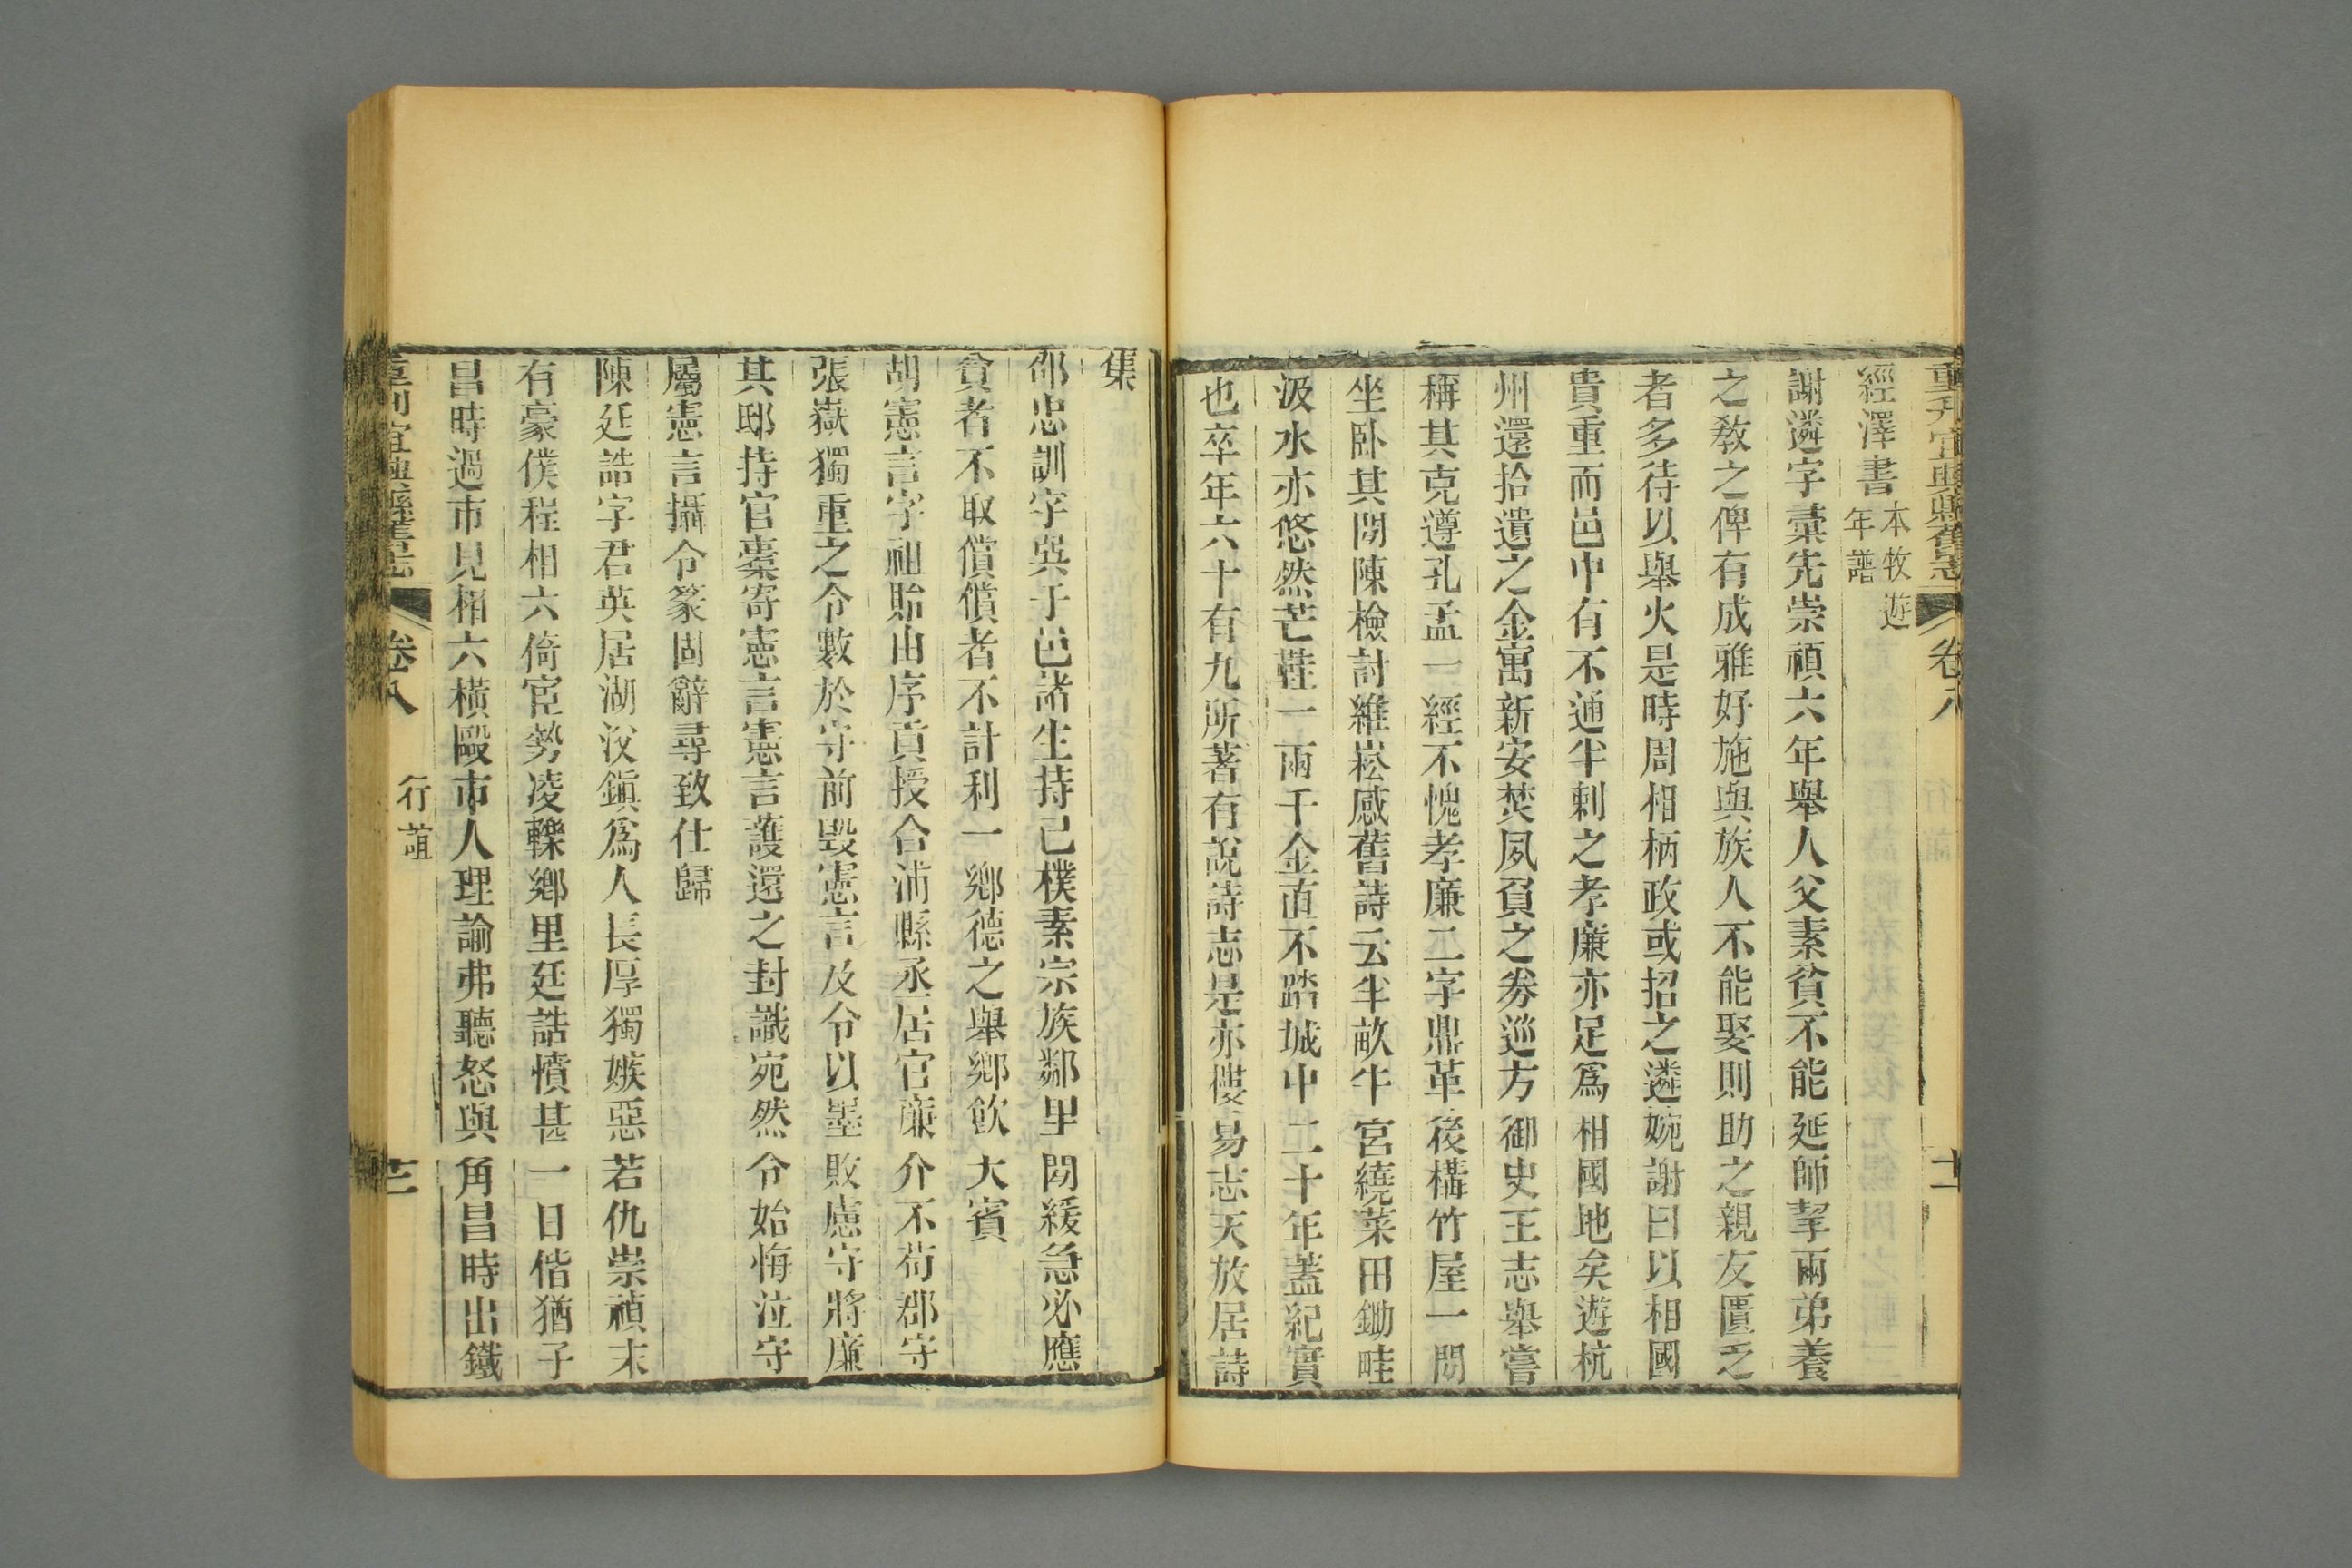 重刋宜興縣舊志 卷八 十二
經澤書 本牧遊年譜
謝遴字彚先崇禎六年舉人父素貧不能延師挈兩弟養
之敎之俾有成雅好施與族人不能娶則助之親友匱乏
者多待以舉火是時周相柄政或招之遴婉謝曰以相國
貴重而邑中有不通半刺之孝廉亦足爲相國地矣遊杭
州還拾遺之金寓新安焚夙負之劵巡方御史王志舉嘗
稱其克遵孔孟一經不愧孝廉二字鼎革後構竹屋一間
坐卧其閒陳檢討維崧感舊詩云半畝牛宮繞菜田鋤畦
汲水亦悠然芒鞋一兩千金直不踏城中二十年蓋紀實
也卒年六十有九所著有說詩志是亦樓易志天放居詩
集
邵忠訓字吳于邑諸生持己樸素宗族鄰里閒緩急必應
貧者不取償償者不計利一鄉德之舉鄉飮大賓
胡憲言字祖貽由序貢授合浦縣丞居官廉介不苟郡守
張嶽獨重之令數於守前毀憲言及令以墨敗慮守將廉
其邸持官橐寄憲言憲言護還之封識宛然令始悔泣守
屬憲言攝令篆固辭尋致仕歸
陳廷誥字君英居湖㳇鎭爲人長厚獨嫉惡若仇崇禎末
有豪僕程相六倚宦勢凌轢鄉里廷誥憤甚一日偕猶子
昌時過市見相六橫毆市人理諭弗聽怒與角昌時出鐵
卷八 行誼